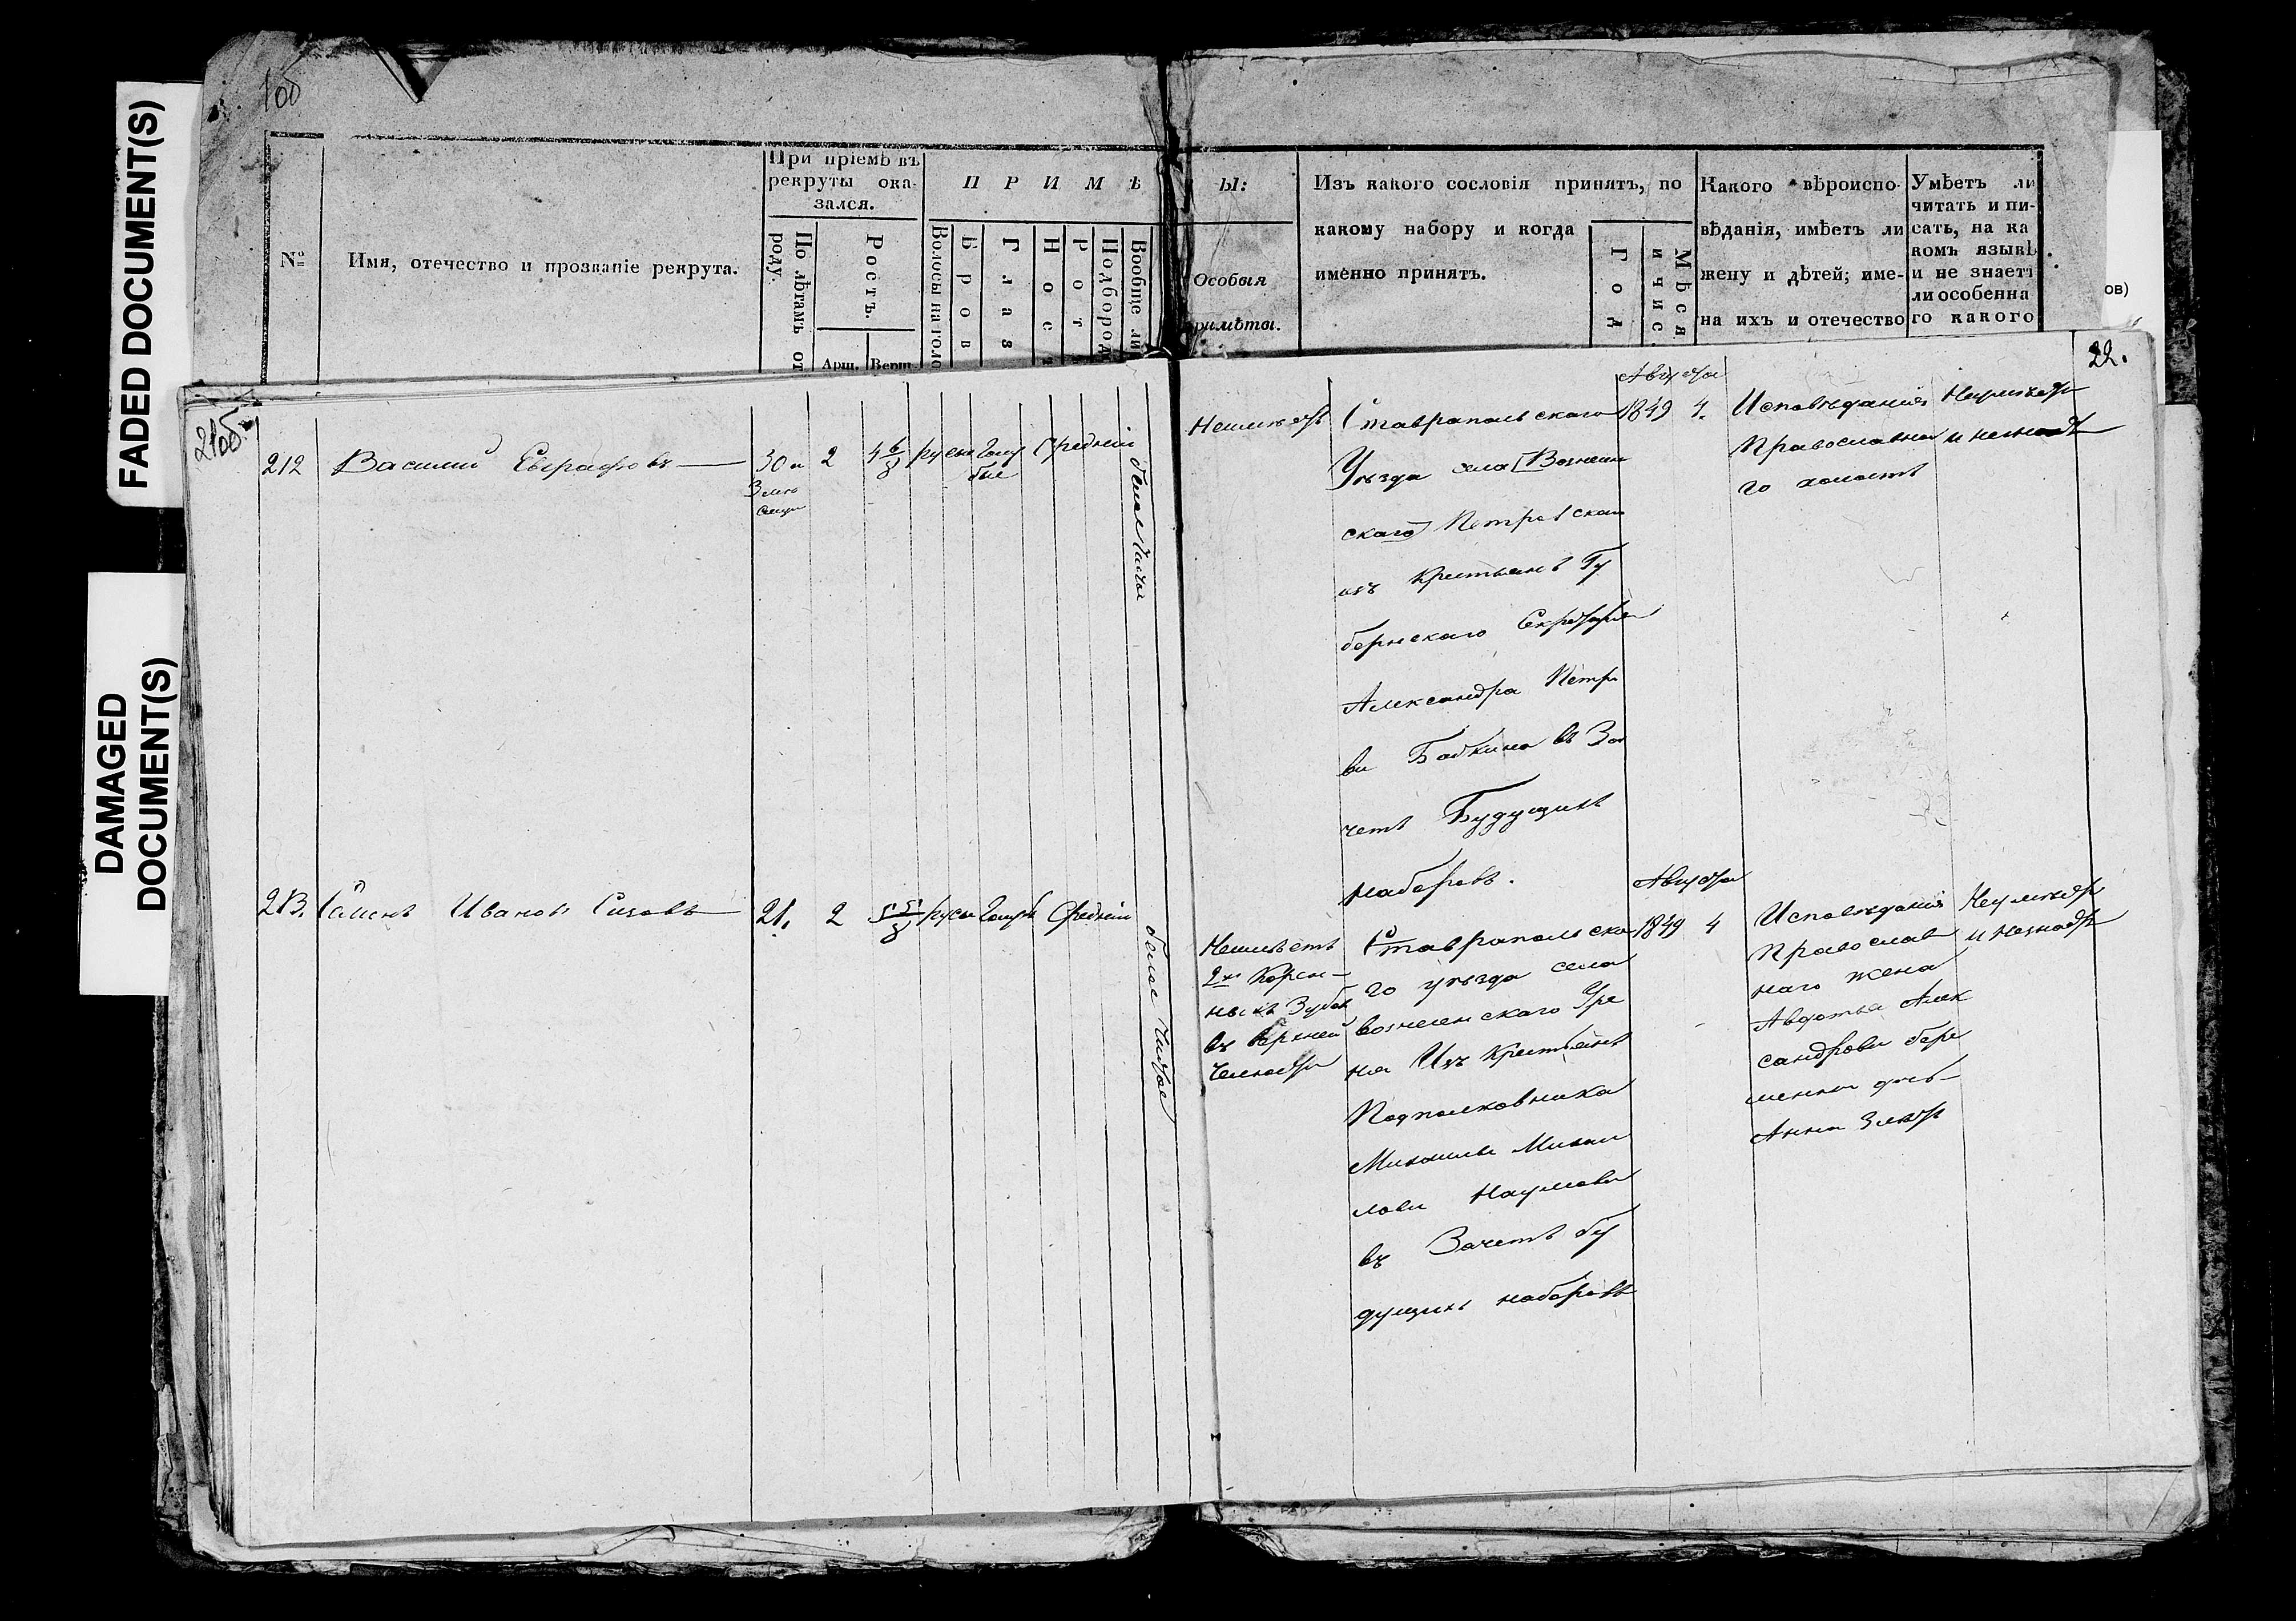 FADED DOCUMENT(S)
DAMAGED
DOCUMENT(S)
1об
№
Имя, отечество и прозваніе рекрута.
При пріемѣ въ
рекруты ока-
зался.
По лѣтамъ от
роду.
Ростъ.
Арш. Верш.
П Р И М Ѣ
Волосы на голо
Бров
Глаз
Нос
Рот
Подбород
Вообще ли
Ы:
Особыя
римѣты.
Изъ какого сословія принятъ, по
какому набору и когда
именно принятъ.
Год
Мѣся.
и чис.
Какого вѣроиспо-
вѣданія, имѣетъ ли
жену и дѣтей; име-
на ихъ и отечество
Умѣетъ ли
читать и пи-
сать, на ка
комъ языкѣ
и не знаетъ
ли особенна
го какого
ов)
22.
21об.
212 Василий 30 и 2 4 6/8 русы Голу Средній
бые
белое чистое
Неимѣетъ
Ставропольскаго
Уѣзда села Вознесен
скаго Петровскаго
изъ Крестьянъ Гу
бернскаго Секретаря
Александра Петро
ва Бабкина въ За
четъ Будущихъ
наборовъ.
Августа
1849 4.
Исповѣдания
Православна
го холостъ
Неумѣетъ
и незнаетъ
213. Семенъ Иванов Сизовъ 21. 2 5 5/8 русы Голуб Средній
белое Чистое
Неимѣетъ
2хъ Корен-
ныхъ Зубов
въ верхней
Челюсти
Ставропольска
го уѣзда села
вознесенскаго Уре
на Изъ Крестьянъ
Подполковника
Михаила Михаи
лова Наумова
въ Зачетъ бу
дущихъ наборовъ
Августа
1849 4
Исповѣдания
Православ
наго жена
Авдотья Алек
сандрова бере
менна дочь
Анна 3 лѣтъ
Неумѣетъ
и Незнаетъ